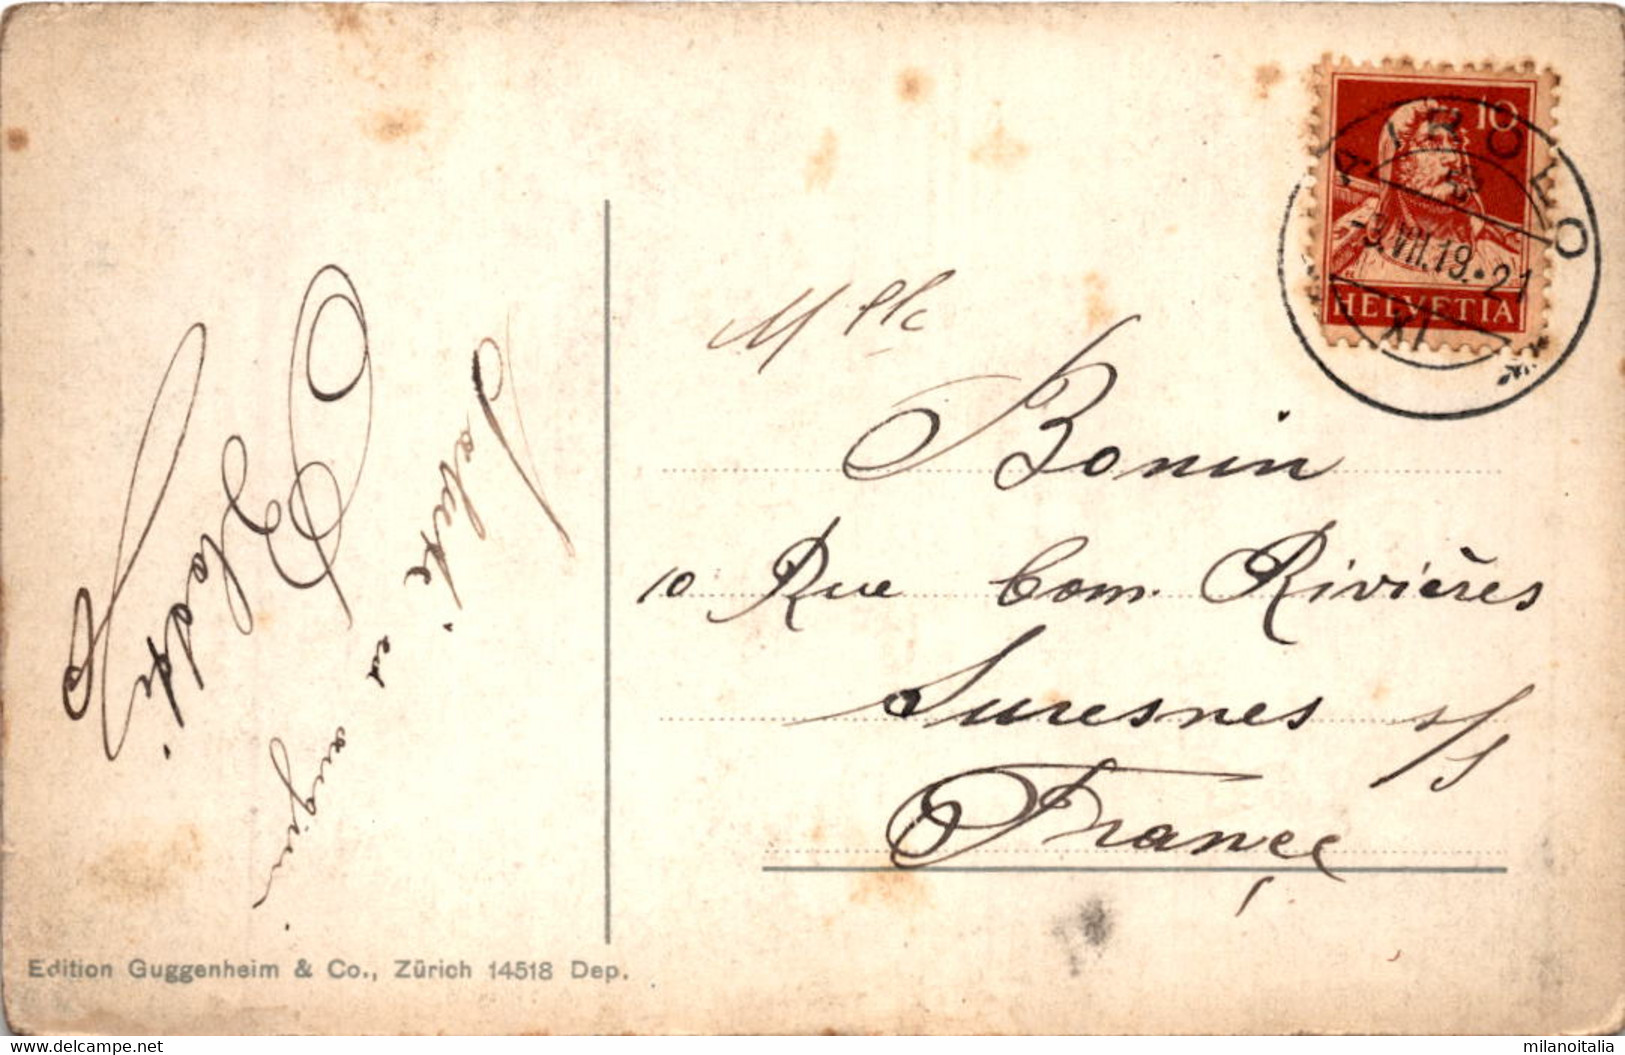 Saluti ed
auguri
Mlle
Bonin
10 Rue Com. Rivières
Suresnes s/s
Françe
10
HELVETIA
AIROLO
-3.VII.19·21
XI
Edition Guggenheim & Co., Zürich 14518 Dep.
www.delcampe.net
milanoitalia